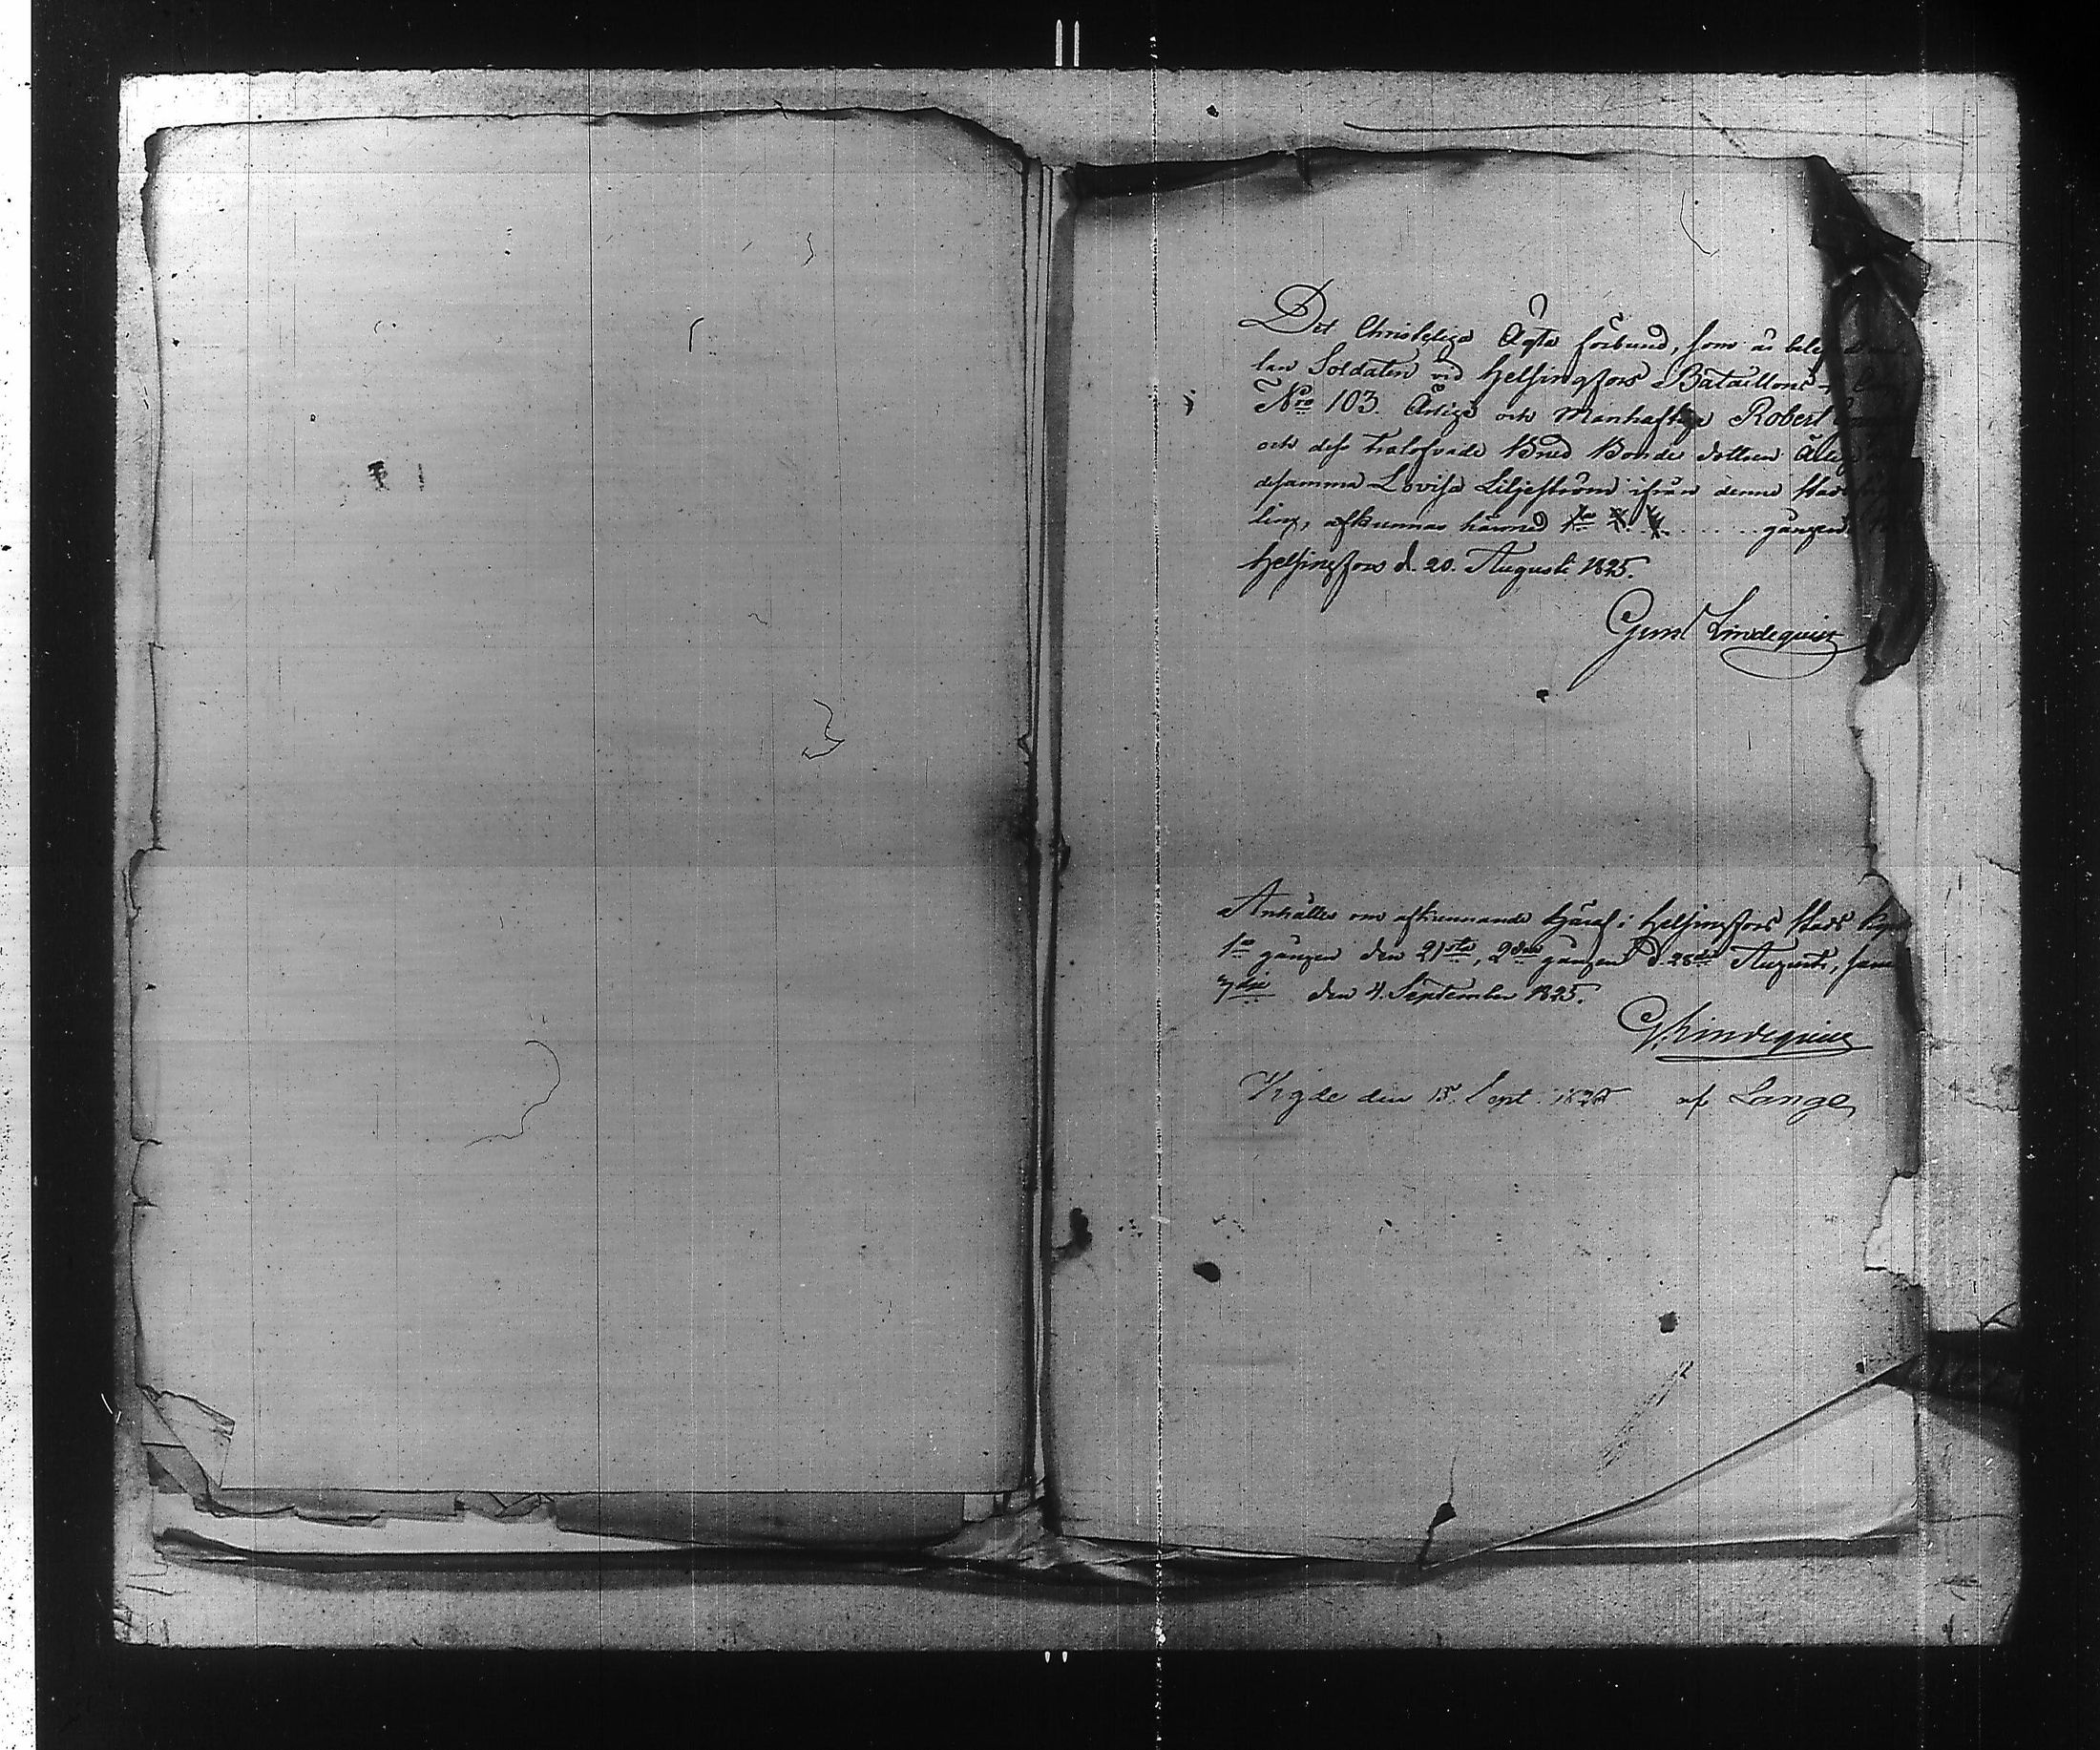 Det Christeliga Ägta förbund, som är
lan Soldaten vid Helsingfors Bataillons
Nro 103. Ärlige och Manhaftige Robert
och dess trolofvade Brud Bonde dottren
desamma Lovisa Liljeström ifrån denne
ling, afkunnas härmed 1sta gången
Helsingfors d. 20. Augusti 1825.
Gust Lindequist
Anhålles om afkunnande häraf i Helsingfors Stads
1a gången den 21sta, 2dra gången d. 28de Augusti, samt
3dje den 4. September 1825.
G. Lindequist
Vigde den 15 Sept. 1825 af Lange